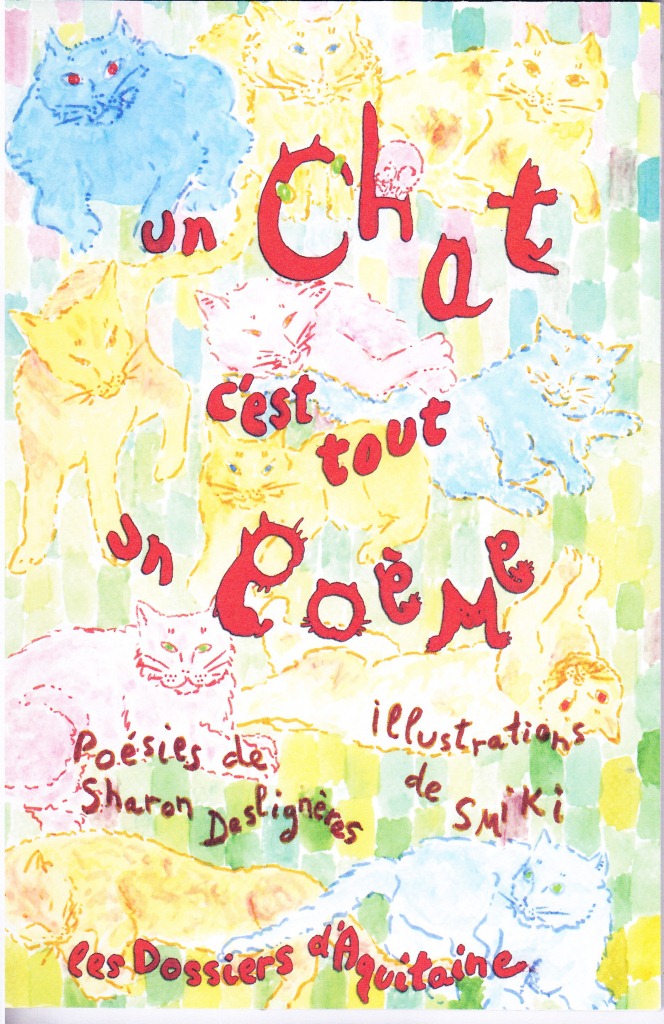 un Chat
c'est tout
un Poème
Poésies de
Sharon Deslignères
illustrations
de Smiki
les Dossiers d'Aquitaine